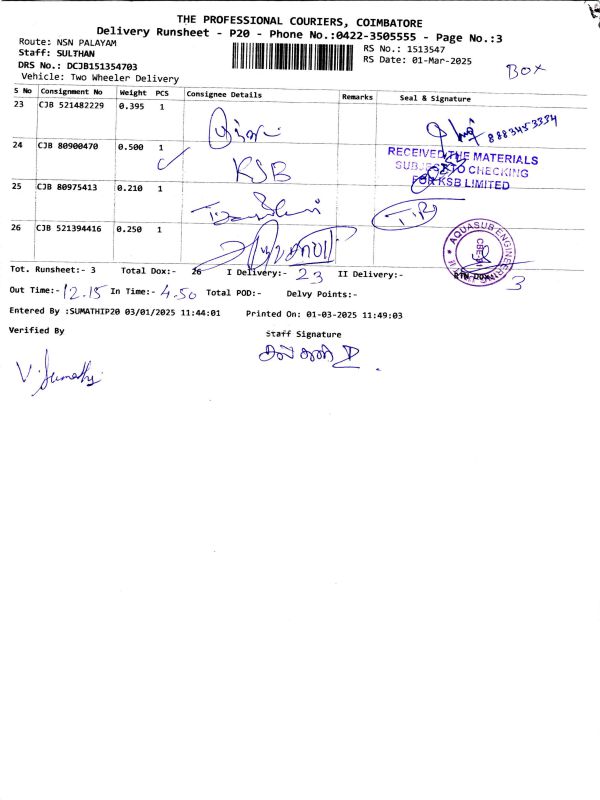 THE PROFESSIONAL COURIERS, COIMBATORE
Delivery Runsheet - P20 - Phone No.:0422-3505555 - Page No.:3
Route: NSN PALAYAM
RS No.: 1513547
Staff: SULTHAN
RS Date: 01-Mar-2025
DRS No.: DCJB151354703
BOX
Vehicle: Two Wheeler Delivery
S No Consignment No Weight PCS Consignee Details Remarks Seal & Signature
23 CJB 521482229 0.395 1
8883453334
24 CJB 80900470 0.500 1 KSB
RECEIVED THE MATERIALS
SUBJECT TO CHECKING
FOR KSB LIMITED
25 CJB 80975413 0.210 1
26 CJB 521394416 0.250 1
AQUASUB ENGINEERING
Tot. Runsheet:- 3 Total Dox:- 26 I Delivery:- 23 II Delivery:- 3
Out Time:- 12.15 In Time:- 4.50 Total POD:- Delvy Points:-
Entered By :SUMATHIP20 03/01/2025 11:44:01 Printed On: 01-03-2025 11:49:03
Verified By Staff Signature
V. Sumathi